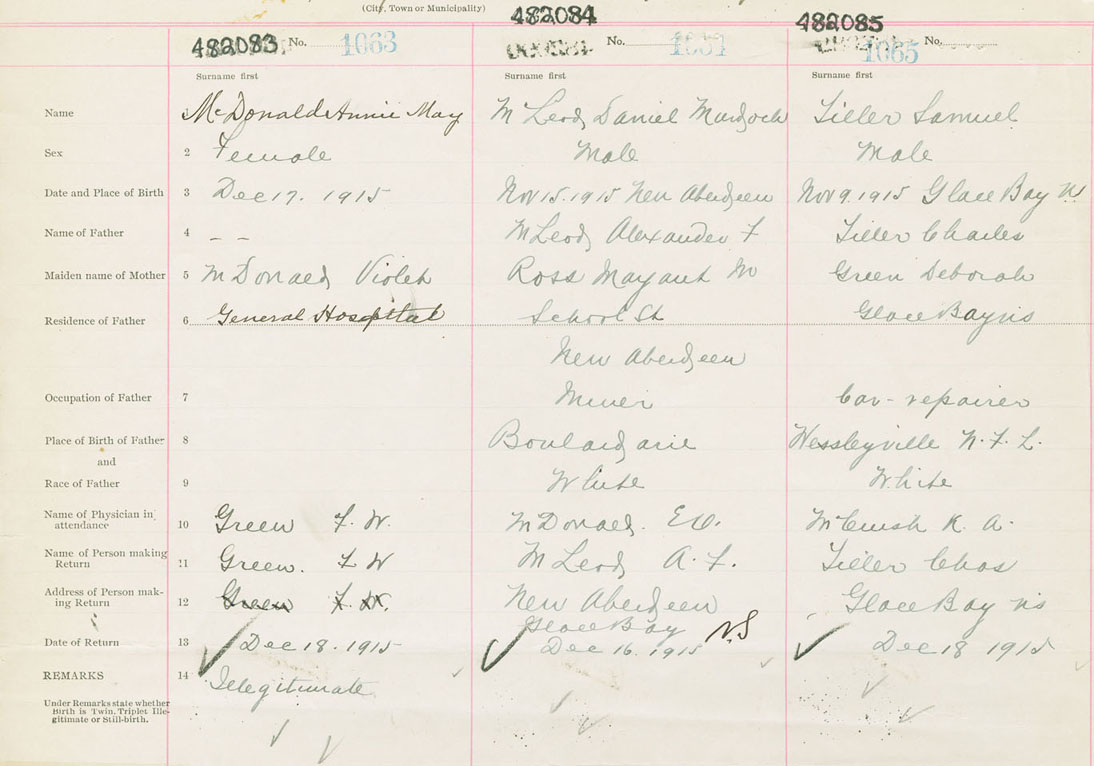 (City, Town or Municipality)
482083 No. 1063
482084 No. 1064
482085 No. 1065
Surname first Surname first Surname first
Name McDonald Annie May McLeod, Daniel Murdoch Tiller Samuel
Sex 2 Female Male Male
Date and Place of Birth 3 Dec 17. 1915 Nov 15. 1915 New Aberdeen Nov 9. 1915 Glace Bay NS
Name of Father 4 – – McLeod, Alexander F Tiller Charles
Maiden name of Mother 5 McDonald, Violet Ross Margaret M Green Deborah
Residence of Father 6 General Hospital School St Glace Bay NS
New Aberdeen
Occupation of Father 7 Miner Car-repairer
Place of Birth of Father 8 Boulardarie Wessleyville N.F.L.
and
Race of Father 9 White White
Name of Physician in attendance 10 Green F. W. McDonald. E.O. K. A.
Name of Person making Return 11 Green. F W McLeod, A. F. Tiller Chas
Address of Person making Return 12 Green F. W. New Aberdeen Glace Bay NS
Glace Bay N.S
Date of Return 13 Dec 18. 1915 Dec 16. 1915 Dec 18 1915
REMARKS 14 Illegitimate
Under Remarks state whether
Birth is Twin, Triplet Ille-
gitimate or Still-birth.